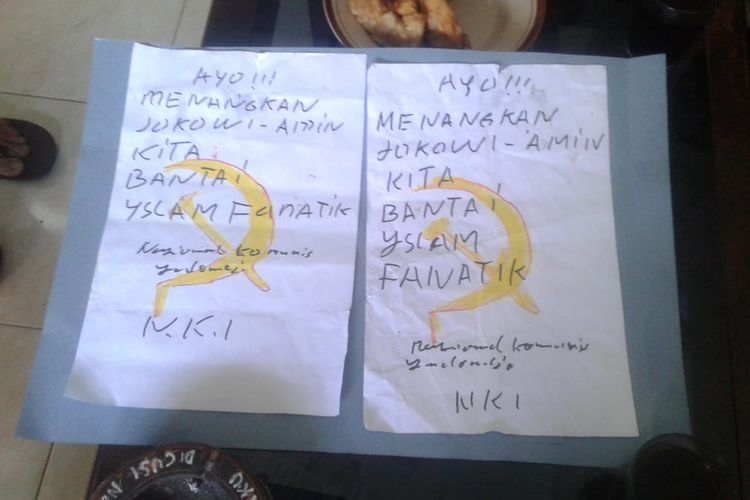 AYO!!!
MENANGKAN
JOKOWI-AMIN
KITA
BANTAI
YSLAM FANATIK
Nasional komunis
yndonesi
N.K.I
AYO!!!
MENANGKAN
JOKOWI-AMIN
KITA
BANTAI
YSLAM
FANATIK
Nasional komunis
yndonesia
NKI
DICUSI